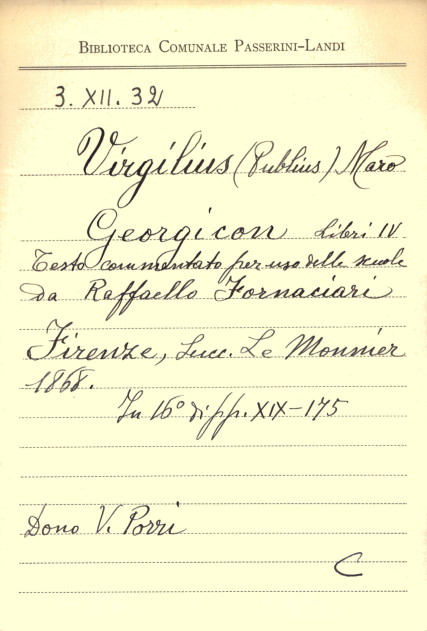 BIBLIOTECA COMUNALE PASSERINI-LANDI
3. XII. 32
Virgilius (Publius) Maro
Georgicon Libri IV
Testo commentato per uso delle scuole
da Raffaello Fornaciari
Firenze, Succ. Le Monnier
1868.
In 16° di pp. XIX-175
Dono V. Porri
C